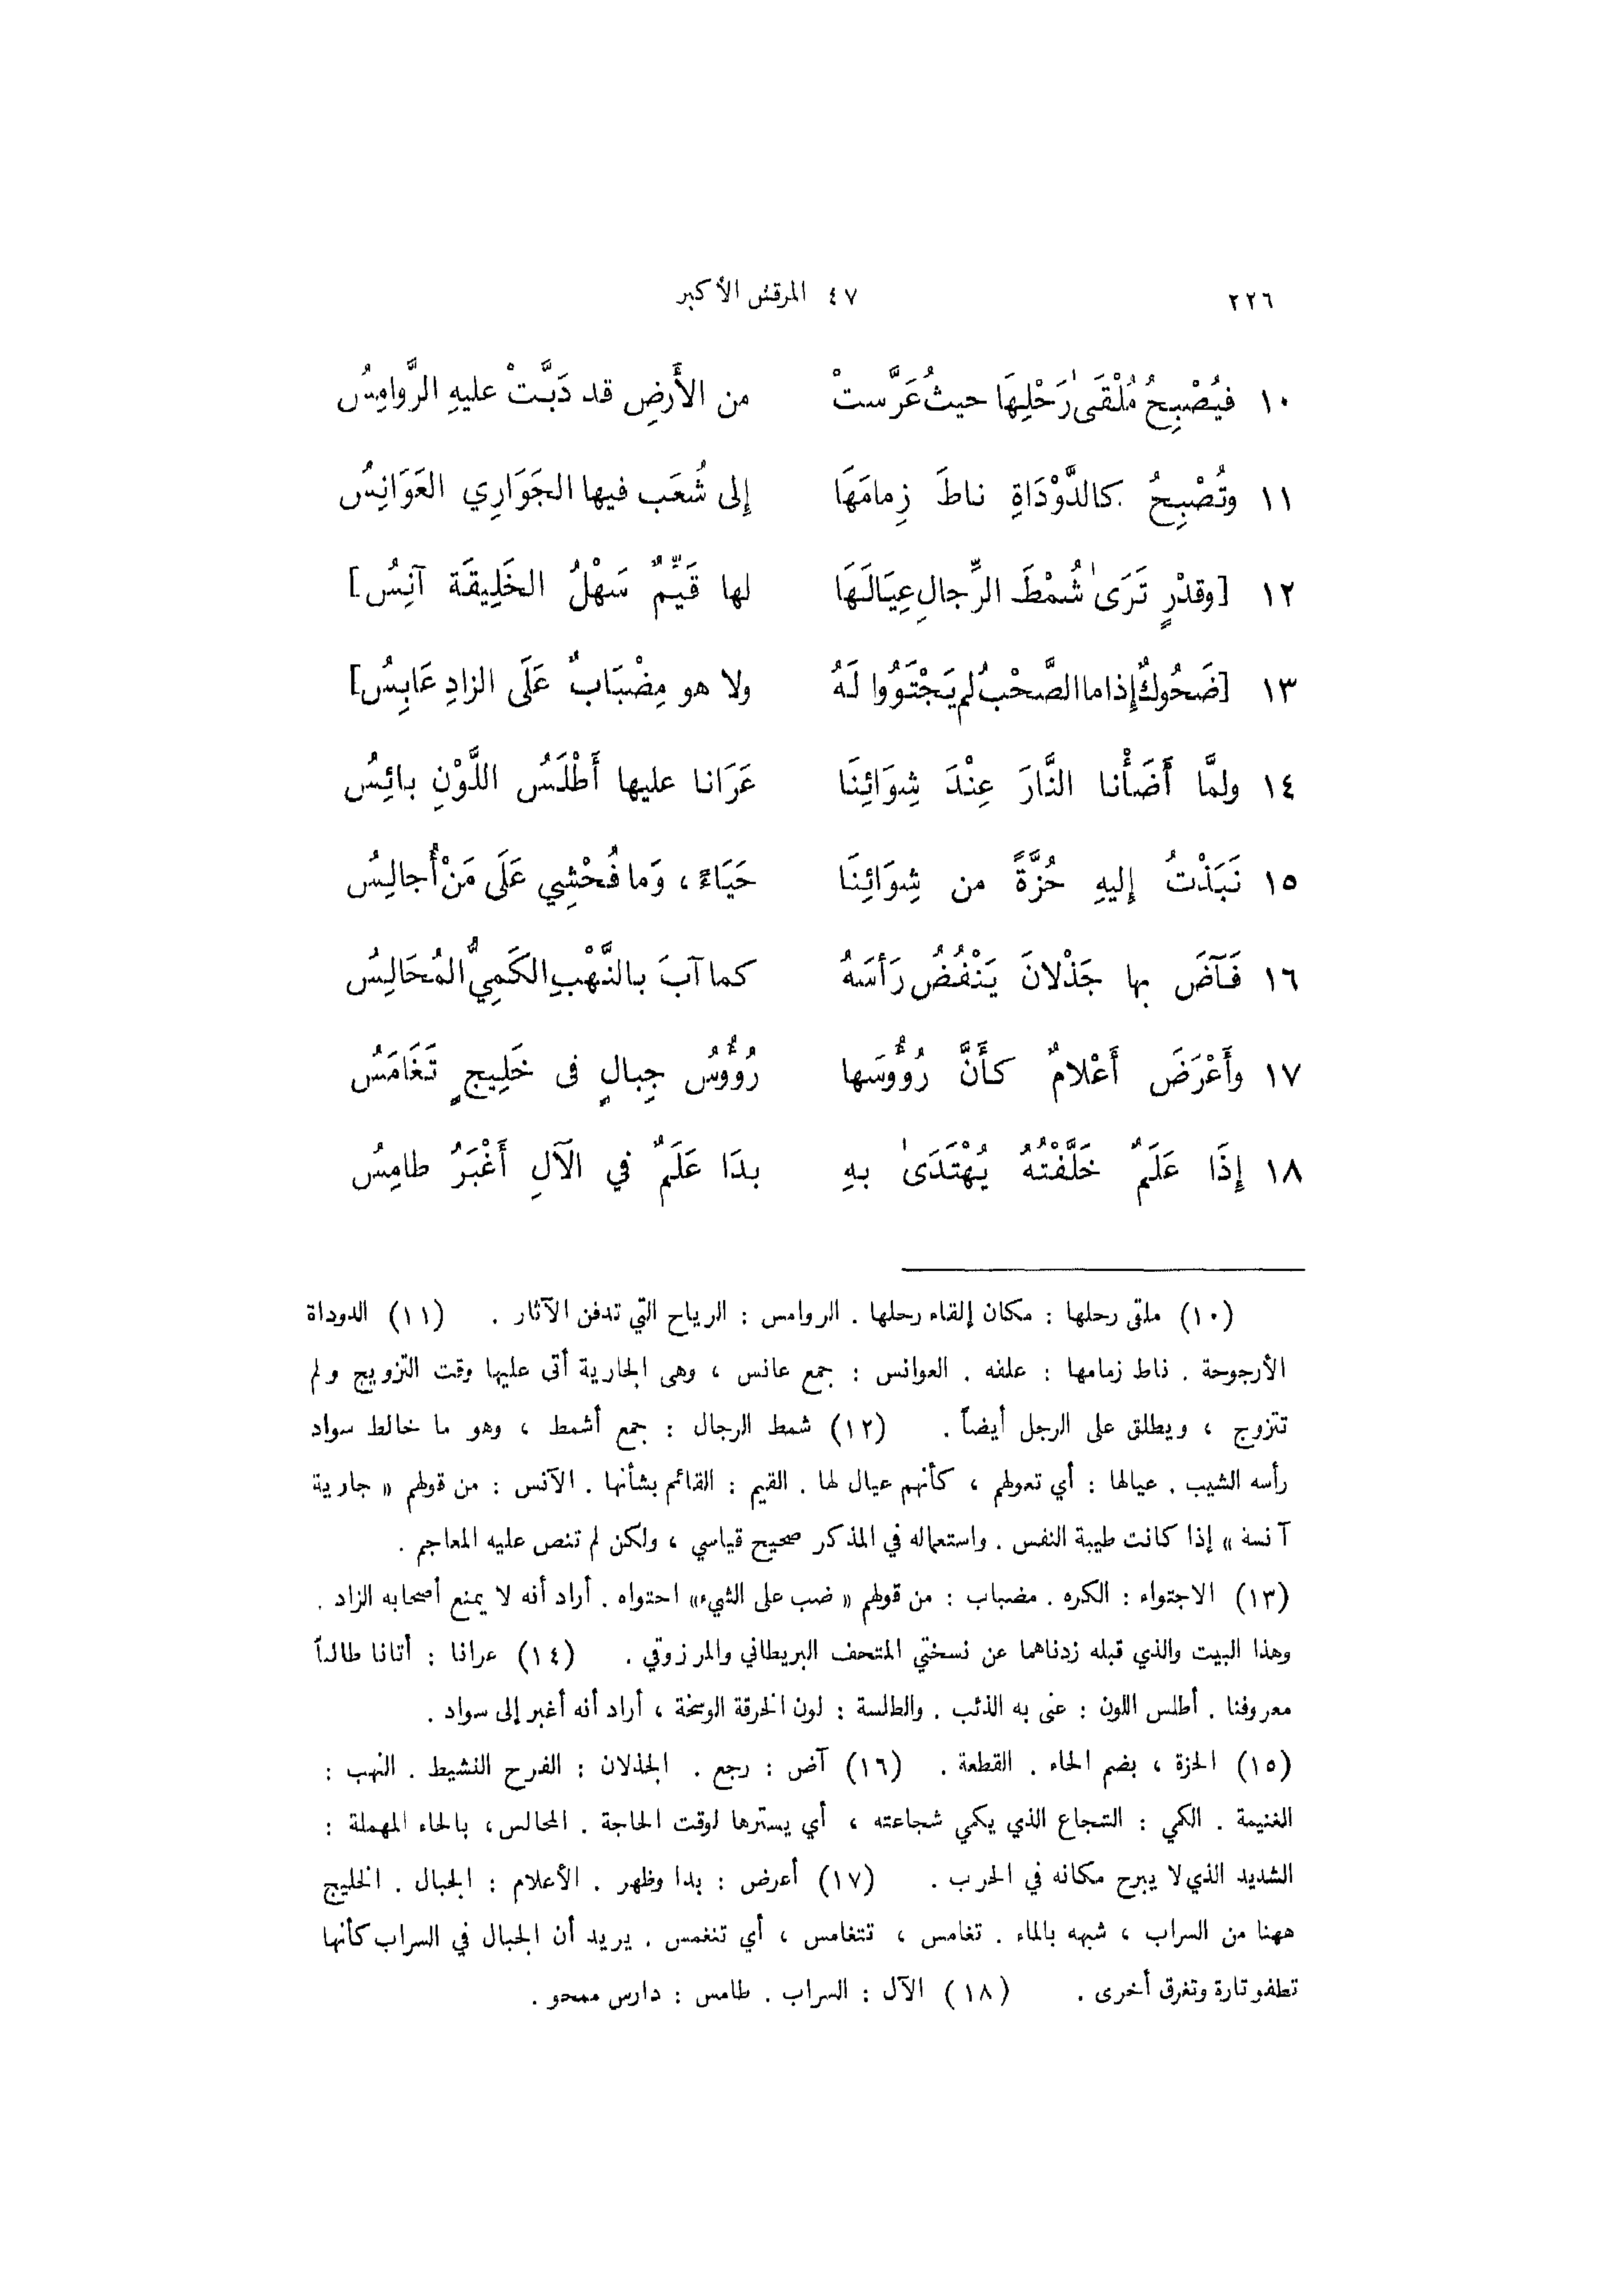 ٢٢٦ ٤٧ المرقش الأكبر
١٠ فيُصْبِحُ مُلْقَىٰ رَحْلِهَا حيثُ عَرَّستْ من الأَرضِ قد دَبَّتْ عليهِ الرَّوامِسُ
١١ وتُصْبِحُ كالدَّوْدَاةِ ناطَ زِمامَهَا إِلى شُعَبٍ فيها الجَوَارِي العَوَانِسُ
١٢ [وقِدْرٍ تَرَىٰ شُمْطَ الرِّجالِ عِيَالَهَا لها قَيِّمٌ سَهْلُ الخَلِيقَة آنِسُ]
١٣ [ضَحُوكٌ إِذا ما الصَّحْبُ لم يَجْتَوُوا لَهُ ولا هو مِضْبَابٌ عَلَى الزادِ عَابِسُ]
١٤ ولمَّا أَضَأْنا النَّارَ عِنْدَ شِوَائِنَا عَرَانا عليها أَطْلَسُ اللَّوْنِ بائِسُ
١٥ نَبَذْتُ إِليهِ حُزَّةً من شِوَائِنَا حَيَاءً ، وَما فُحْشِي عَلَى مَنْ أُجالِسُ
١٦ فَآضَ بها جَذْلانَ يَنْفُضُ رَأسَهُ كما آبَ بالنَّهْبِ الكَمِيُّ المُحَالِسُ
١٧ وأَعْرَضَ أَعْلامٌ كأَنَّ رُؤُوسَها رُؤُوسُ جِبالٍ فى خَلِيجٍ تَغَامَسُ
١٨ إِذَا عَلَمٌ خَلَّفْتُهُ يُهْتَدَىٰ بهِ بدَا عَلَمٌ في الآلِ أَغْبَرُ طامِسُ
(١٠) ملقى رحلها : مكان إلقاء رحلها . الروامس : الرياح التي تدفن الآثار . (١١) الدوداة
الأرجوحة . ناط زمامها : علقه . العوانس : جمع عانس ، وهى الجارية أتى عليها وقت التزويج ولم
تتزوج ، ويطلق على الرجل أيضاً . (١٢) شمط الرجال : جمع أشمط ، وهو ما خالط سواد
رأسه الشيب . عيالها : أي تعولهم ، كأنهم عيال لها . القيم : القائم بشأنها . الآنس : من قولهم « جارية
آنسة » إذا كانت طيبة النفس . واستعماله في المذكر صحيح قياسي ، ولكن لم تنص عليه المعاجم .
(١٣) الاجتواء : الكره . مضباب : من قولهم « ضب على الشيء» احتواه . أراد أنه لا يمنع أصحابه الزاد .
وهذا البيت والذي قبله زدناهما عن نسختي المتحف البريطاني والمرزوقي . (١٤) عرانا : أتانا طالباً
معروفنا . أطلس اللون : عنى به الذئب . والطلسة : لون الخرقة الوسخة ، أراد أنه أغبر إلى سواد .
(١٥) الحزة ، بضم الحاء . القطعة . (١٦) آض : رجع . الجذلان : الفرح النشيط . النهب :
الغنيمة . الكمي : الشجاع الذي يكمي شجاعته ، أي يسترها لوقت الحاجة . المحالس ، بالحاء المهملة :
الشديد الذي لا يبرح مكانه في الحرب . (١٧) أعرض : بدا وظهر . الأعلام : الجبال . الخليج
ههنا من السراب ، شبهه بالماء . تغامس ، تتغامس ، أي تنغمس . يريد أن الجبال في السراب كأنها
تطفو تارة وتغرق أخرى . (١٨) الآل : السراب . طامس : دارس ممحو .